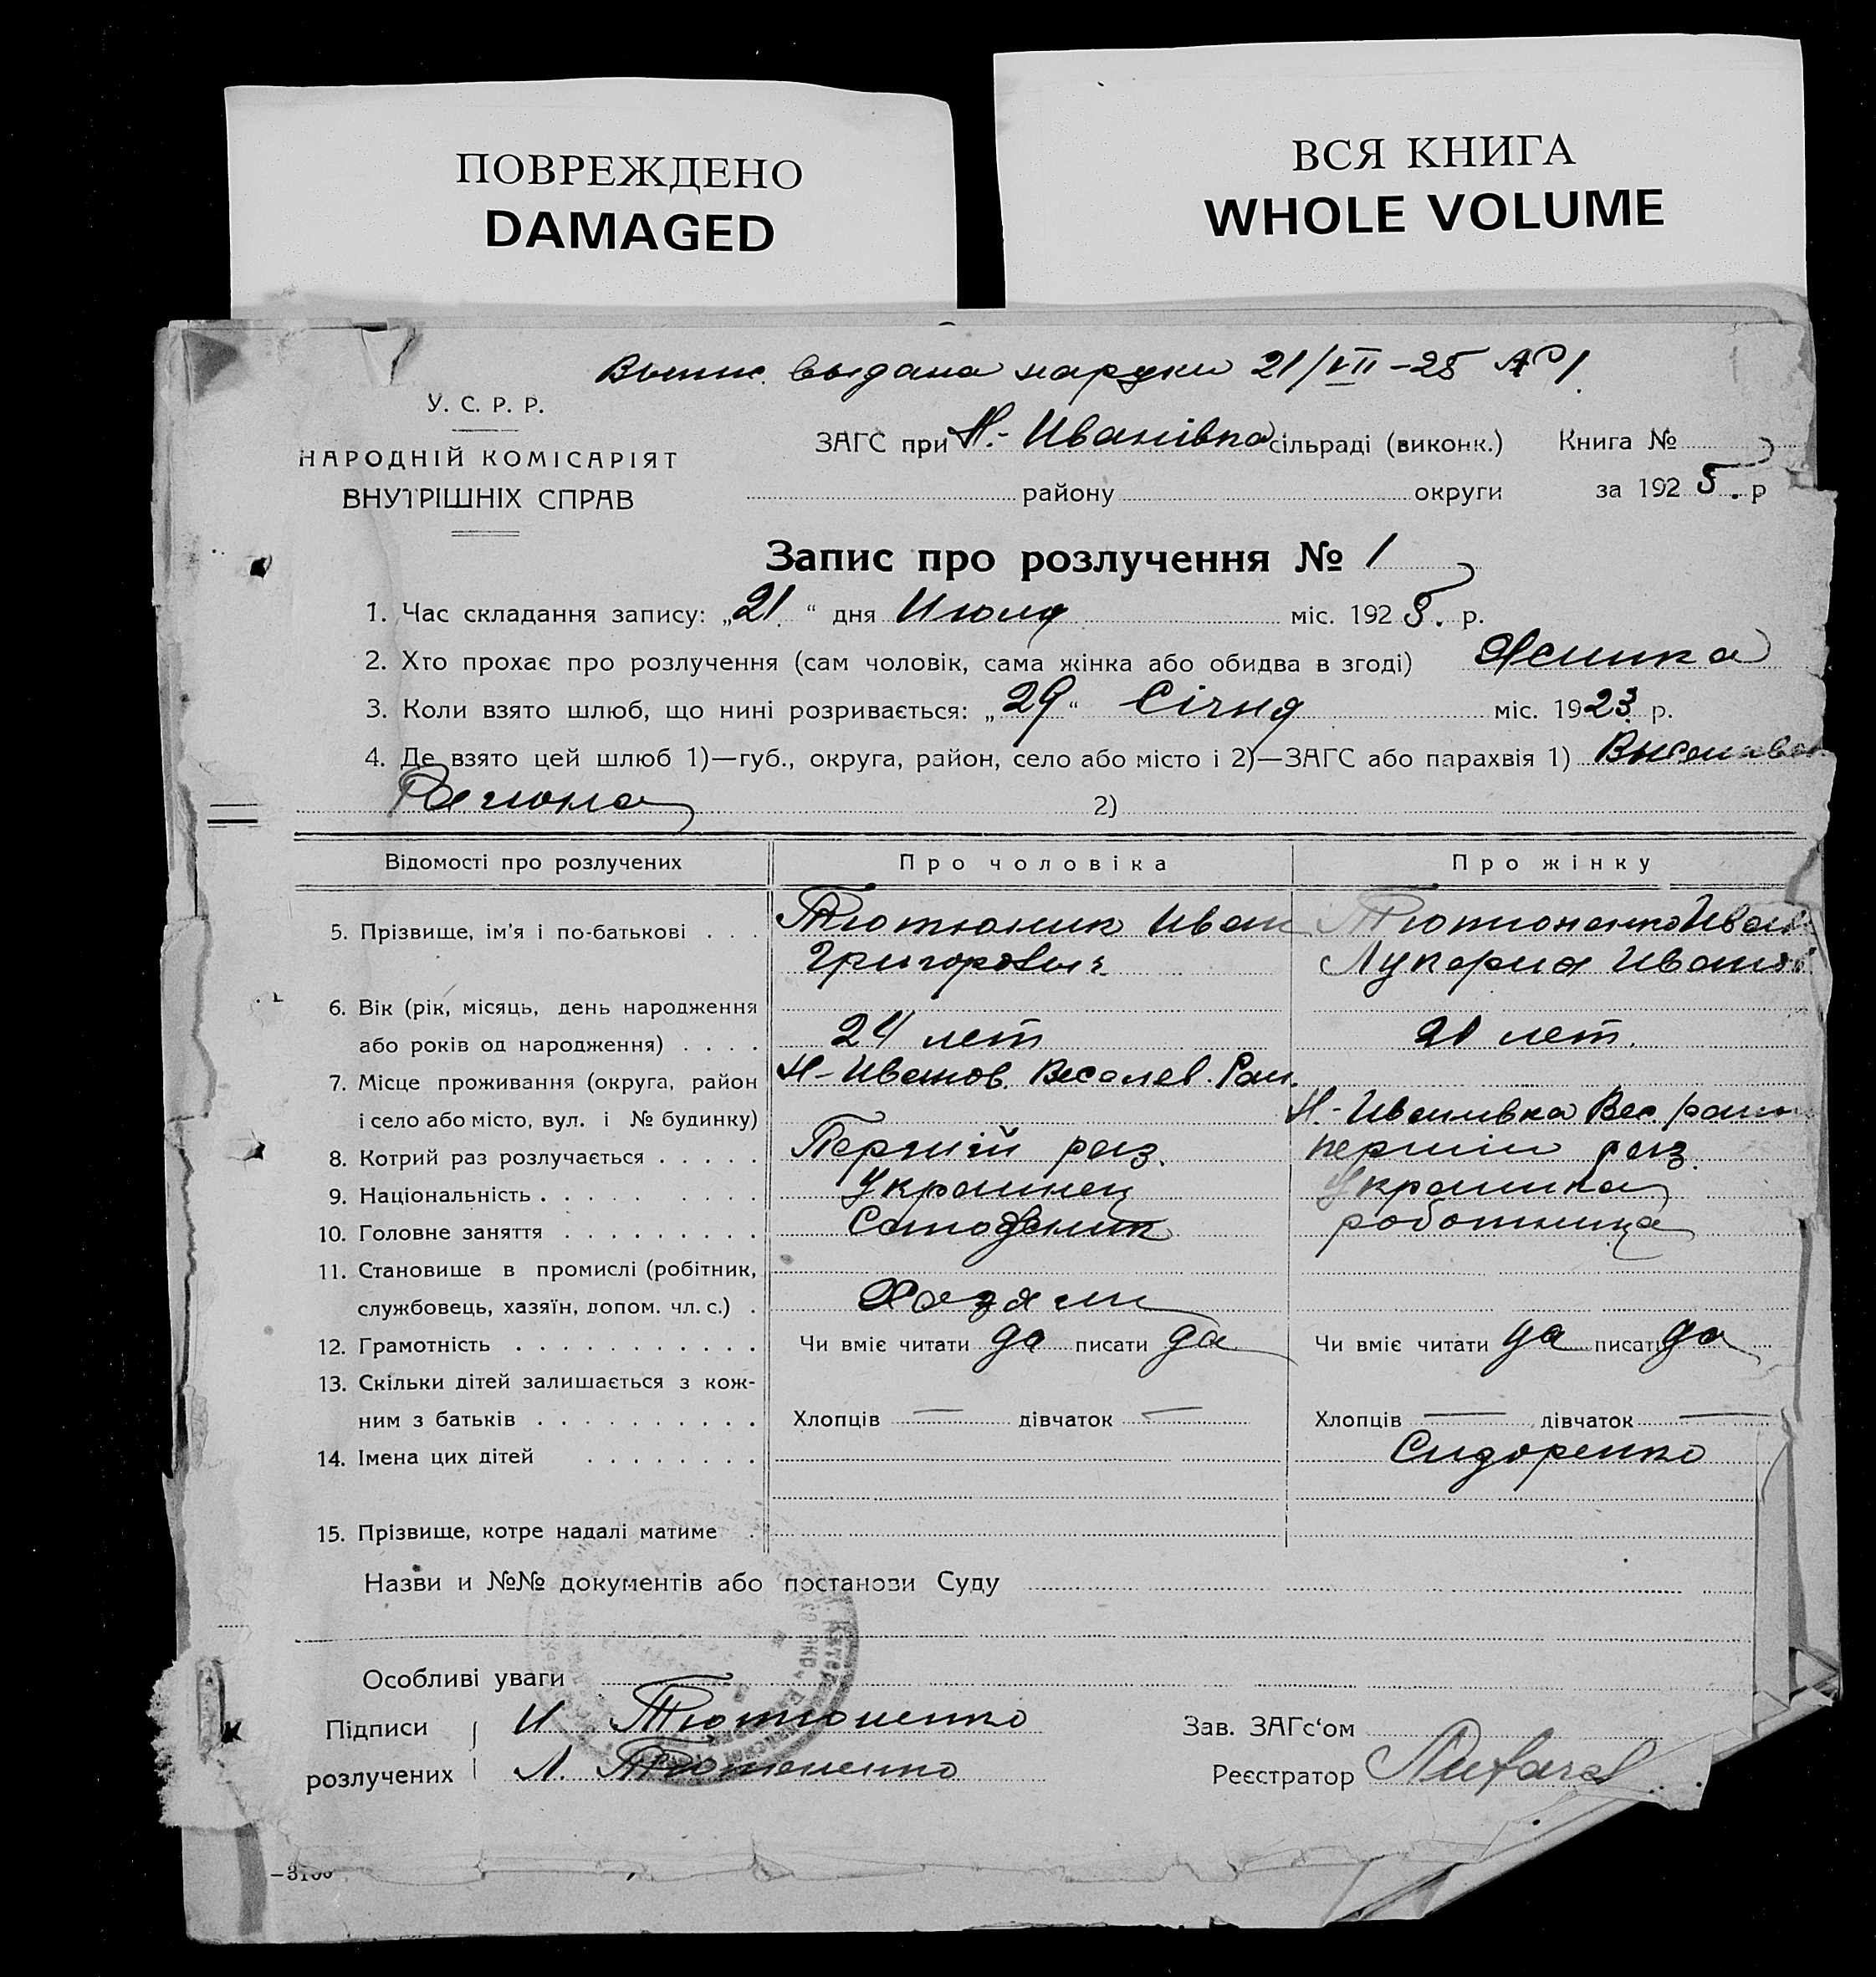 ПОВРЕЖДЕНО
DAMAGED
ВСЯ КНИГА
WHOLE VOLUME
выдана наруки 21/VII-25
У. С. Р. Р.
НАРОДНІЙ КОМІСАРІЯТ
ВНУТРІШНІХ СПРАВ
ЗАГС при Н.-Иванівка сільраді (виконк.) Книга №
району округи за 1925. р
Запис про розлучення № 1
1. Час складання запису: „21" дня Июля міс. 1925. р.
2. Хто прохає про розлучення (сам чоловік, сама жінка або обидва в згоді)
3. Коли взято шлюб, що нині розривається: „29" Січня міс. 1923 р.
4. Де взято цей шлюб 1)—губ., округа, район, село або місто і 2)—ЗАГС або парахвія 1)
2)
Відомості про розлучених Про чоловіка Про жінку
5. Прізвище, ім'я і по-батькові . . . Тютюник Иван
Григорович Лукария
6. Вік (рік, місяць, день народження
або років од народження) . . . . 24 лет 21 лет.
7. Місце проживання (округа, район Н-Иванов. Веселев. Рай.
і село або місто, вул. і № будинку) Н.-Иванивка Вес.
8. Котрий раз розлучається . . . . . Перший раз. перший раз.
9. Національність . . . . . . . . . Украинец Украинка
10. Головне заняття . . . . . . . . . работница
11. Становище в промислі (робітник,
службовець, хазяїн, допом. чл. с.) . Хозяин
12. Грамотність . . . . . . . . . . . Чи вміє читати да писати да Чи вміє читати да писати да
13. Скільки дітей залишається з кож-
ним з батьків . . . . . . . . . . Хлопців — дівчаток — Хлопців — дівчаток —
14. Імена цих дітей . . . . . . . . Сидоренко
15. Прізвище, котре надалі матиме .
Назви и №№ документів або постанови Суду
Особливі уваги
Підписи И Тютюненко Зав. ЗАГс'ом
розлучених Л. Тютюненко Реєстратор